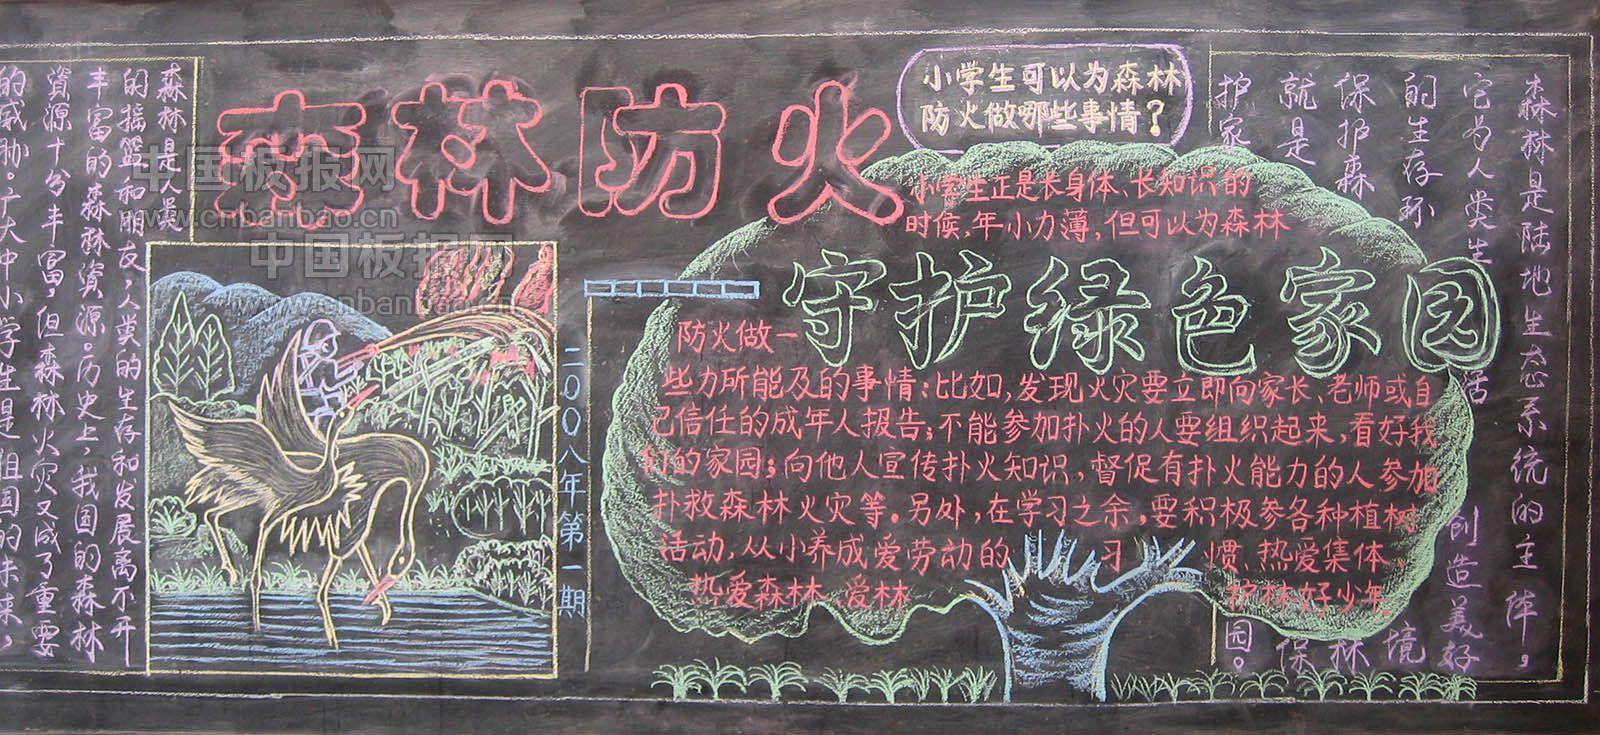 森林防火
小学生可以为森林
防火做哪些事情？
小学生正是长身体、长知识的
时候，年小力薄，但可以为森林
守护绿色家园
防火做一
些力所能及的事情：比如，发现火灾要立即向家长、老师或自
己信任的成年人报告；不能参加扑火的人要组织起来，看好我
们的家园；向他人宣传扑火知识，督促有扑火能力的人参加
扑救森林火灾等。另外，在学习之余，要积极参各种植树
活动，从小养成爱劳动的 习 惯、热爱集体、
热爱森林、爱林 护林好少年。
森林是陆地生态系统的主体，
它为人类生活创造美好
的生存环境
保护森林
就是保
护家园。
二00八年第一期
森林是人类
的摇篮和朋友，人类的生存和发展离不开
丰富的森林资源。历史上，我国的森林
資源十分丰富，但森林火灾又成了重要
的威胁。广大中小学生是祖国的未来，
中国板报网
www.cnbanbao.cn
中国板报网
www.cnbanbao.cn